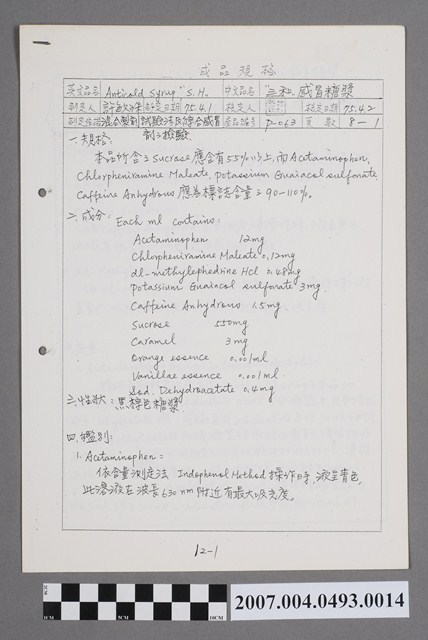 成品規格
英文品名 Anticold Syrup "S.H." 中文品名 "三和" 感冒糖漿
制定人 許敏祥 制定日期 75.4.1 核定人 核定日期 75.4.2
制定依據 混合製劑試驗法及綜合感冒 產品編号 P-063 頁數 8-1
劑之檢驗
一. 規格:
本品所含之 Sucrose 應含有55%以上,而 Acetaminophen,
Chlorpheniramine Maleate, Potassium Guaiacol sulfonate
Caffeine Anhydrous 應為標誌含量之 90-110%。
二. 成分: Each ml contains:
Acetaminophen 12mg
Chlorpheniramine Maleate 0.12mg
dl-methylephedrine HCl 0.48mg
Potassium Guaiacol sulfonate 3mg
Caffeine Anhydrous 1.5mg
Sucrose 550mg
Caramel 3mg
Orange essence 0.001ml
Vanillae essence 0.001ml
Sod. Dehydroacetate 0.4mg
三. 性狀: 黑棕色糖漿
四. 鑑別:
1. Acetaminophen:
依含量測定法 Indophenol Method 操作時,液呈青色,
此溶液在波長 630 nm 附近有最大吸光度。
12-1
2007.004.0493.0014